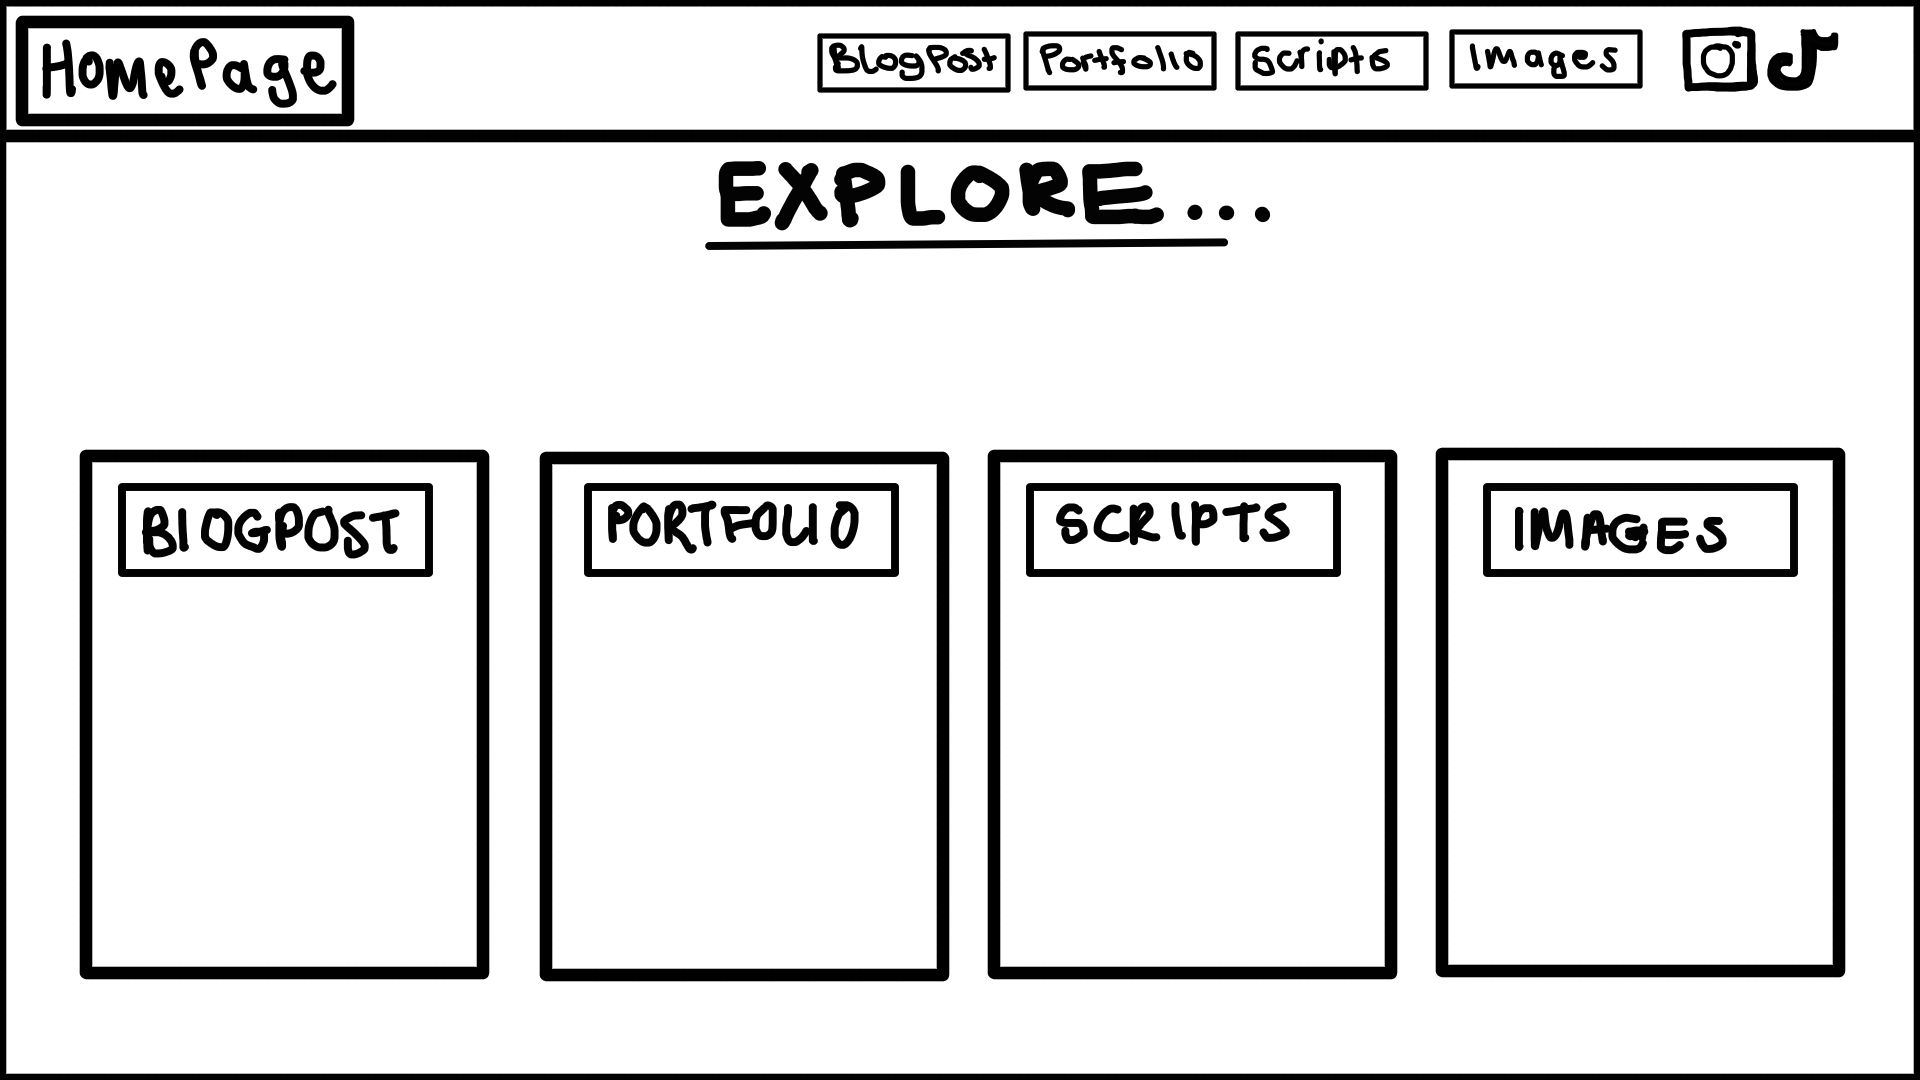 HomePage
BlogPost Portfolio Scripts Images
EXPLORE...
BLOGPOST PORTFOLIO SCRIPTS IMAGES